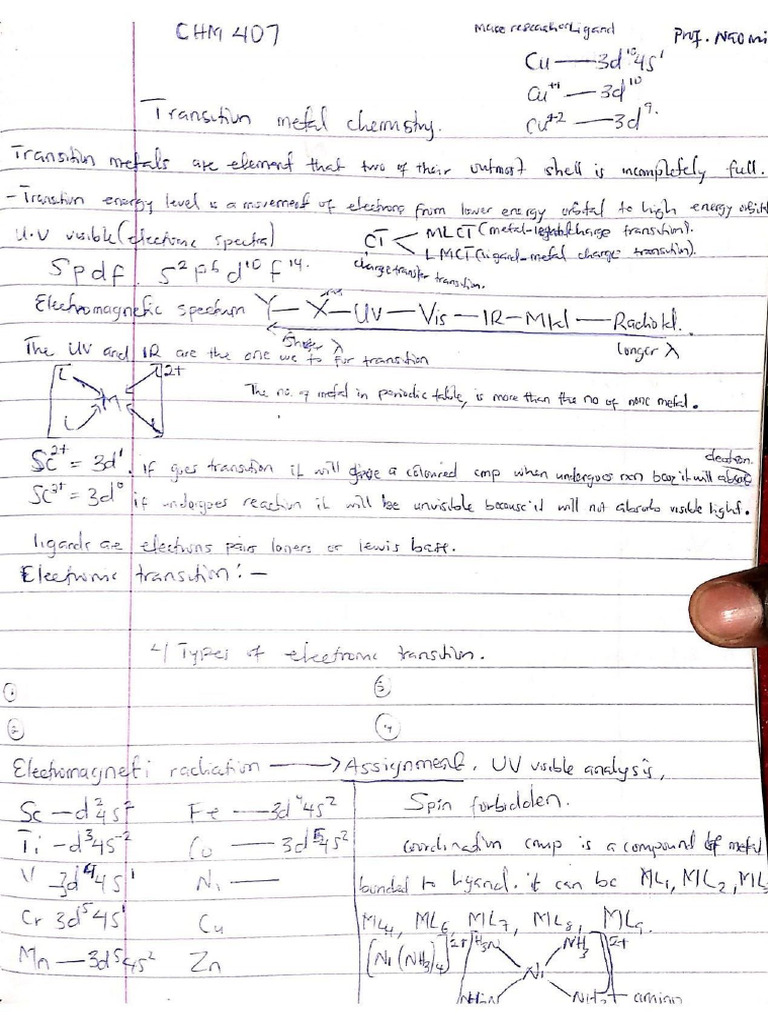 CHM 407
Prof. Naomi
Cu — 3d¹⁰4s¹
Cu⁺¹ — 3d¹⁰
Cu⁺² — 3d⁹.
Transition metal chemistry.
Transition metals are element that two of their outmost shell is incompletely full.
- Transition energy level is a movement of electrons from lower energy orbital to high energy orbital
U.V visible (electronic spectra)
CT
MLCT (metal-legand charge transition).
LMCT (ligand-metal charge transition).
charge transfer transition.
S p d f s² p⁶ d¹⁰ f¹⁴.
Electromagnetic spectrum γ — X — UV — Vis — IR — MW — Radio
Shorter λ
longer λ
The UV and IR are the one we to for transition
[L L M L L]²⁺
The no. of metal in periodic table, is more than the no of none metal.
Sc²⁺ = 3d¹. if goes transition it will give a coloured cmp when undergoes rxn it will absorb
Sc³⁺ = 3d⁰ if undergoes reaction it will be unvisible because it will not absorb visible light.
ligands are electrons pairs loners or lewis base.
Electronic transition: —
4/ Types of electronic transition.
① ③
② ④
Electromagneti radiation ⟶ Assignment. UV visible analysis,
Sc — d²4s² Fe — 3d⁴4s²
Ti — d³4s⁻² Co — 3d⁵4s²
V 3d⁴4s¹ Ni —
Cr 3d⁵4s¹ Cu
Mn — 3d⁵4s² Zn
Spin forbidden.
coordination cmp is a compound of metal
bounded to Ligand. it can be ML₁, ML₂, ML₃
ML₄, ML₆, ML₇, ML₈, ML₉.
[Ni(NH₃)₄]²⁺ [H₃N NH₃ Ni NH₃ NH₃]²⁺